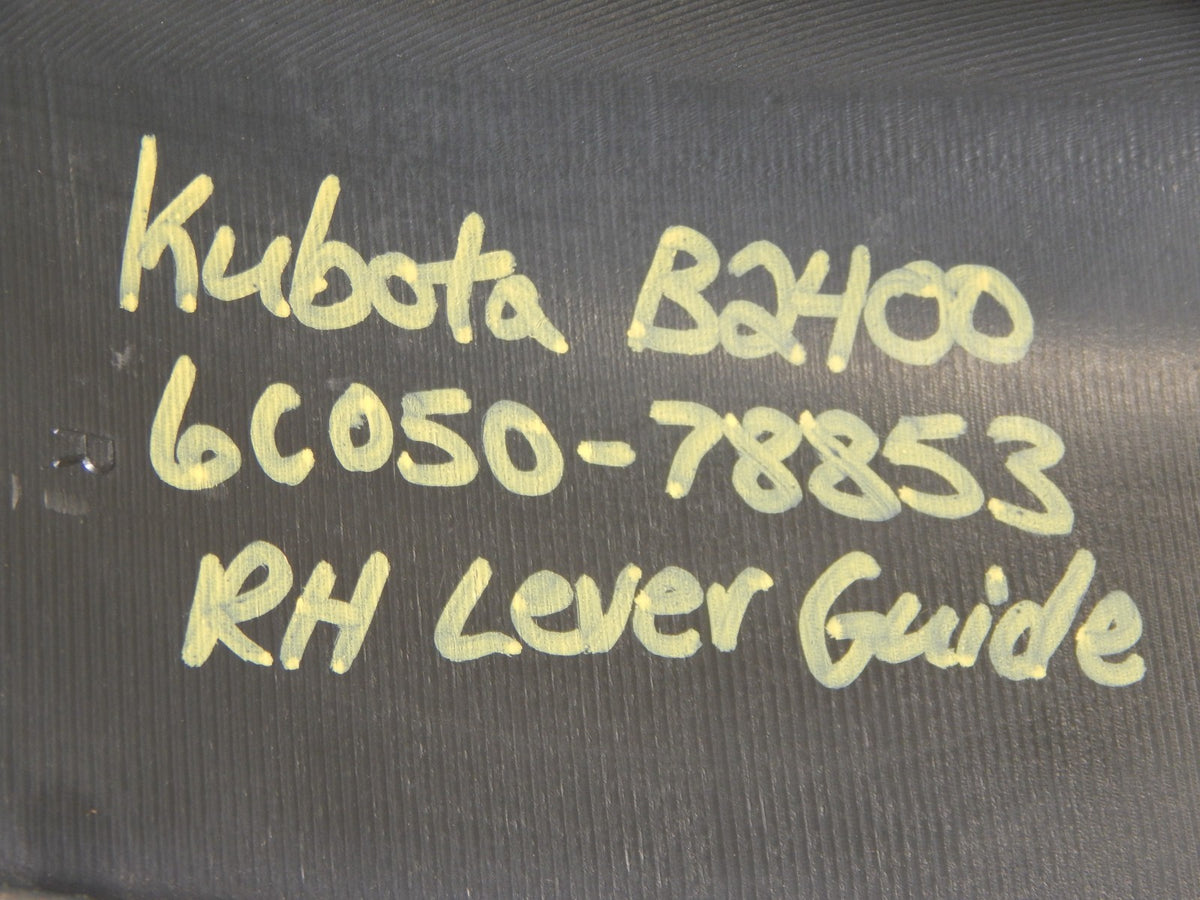 Kubota B2400
6C050-78853
RH Lever Guide